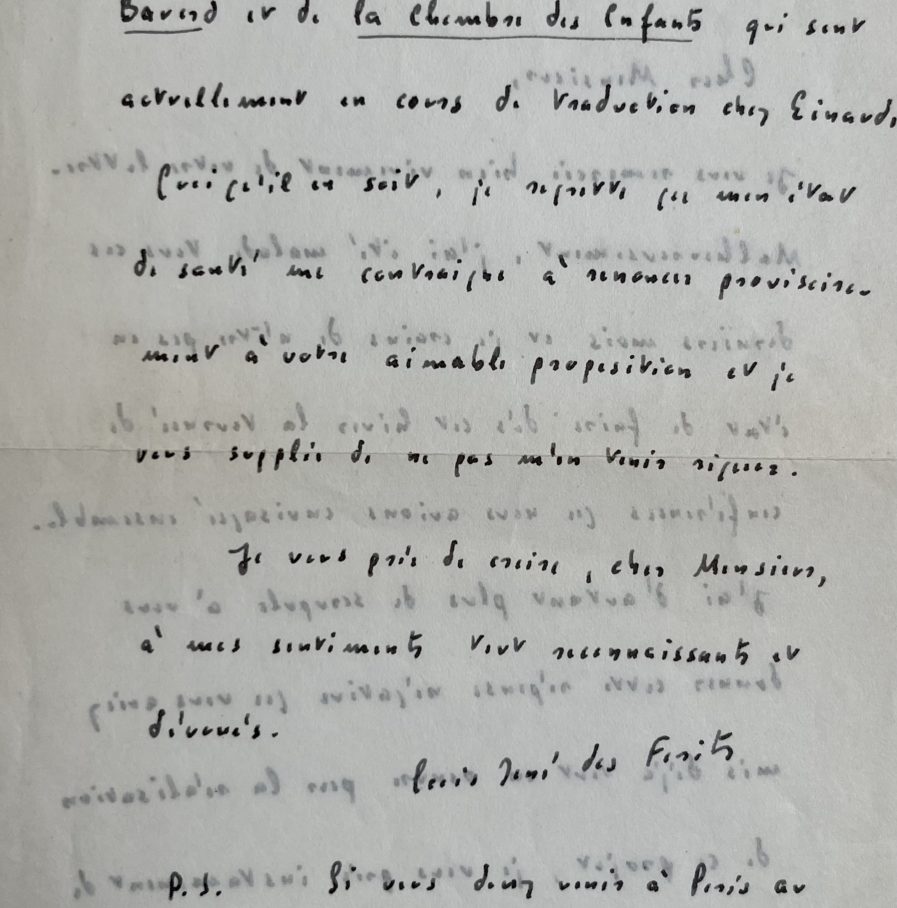 Bavard et de la Chambre des Enfants qui sont
actuellement en cours de traduction chez Einaudi,
Quoi qu'il en soit, je regrette que mon état
de santé me contraigne à renoncer provisoire-
ment à votre aimable proposition et je
vous supplie de ne pas m'en tenir rigueur.
Je vous prie de croire, cher Monsieur,
à mes sentiments tout reconnaissants et
dévoués.
Louis René des Forêts
P.S. Si vous devez venir à Paris au